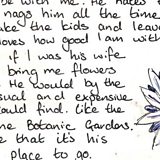 be with me. He hates
nags him all the time
take the kids and leave
loves how good I am with
if I was his wife
bring me flowers
He would by the
usual and expensive
could find. Like the
Botanic Gardens.
that it's his
place to go.